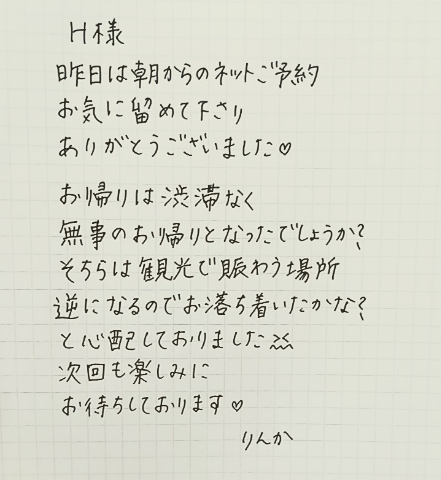 H様
昨日は朝からのネットご予約
お気に留めて下さり
ありがとうございました♡
お帰りは渋滞なく
無事のお帰りとなったでしょうか?
そちらは観光で賑わう場所
逆になるのでお落ち着いたかな?
と心配しておりました
次回も楽しみに
お待ちしております♡
りんか